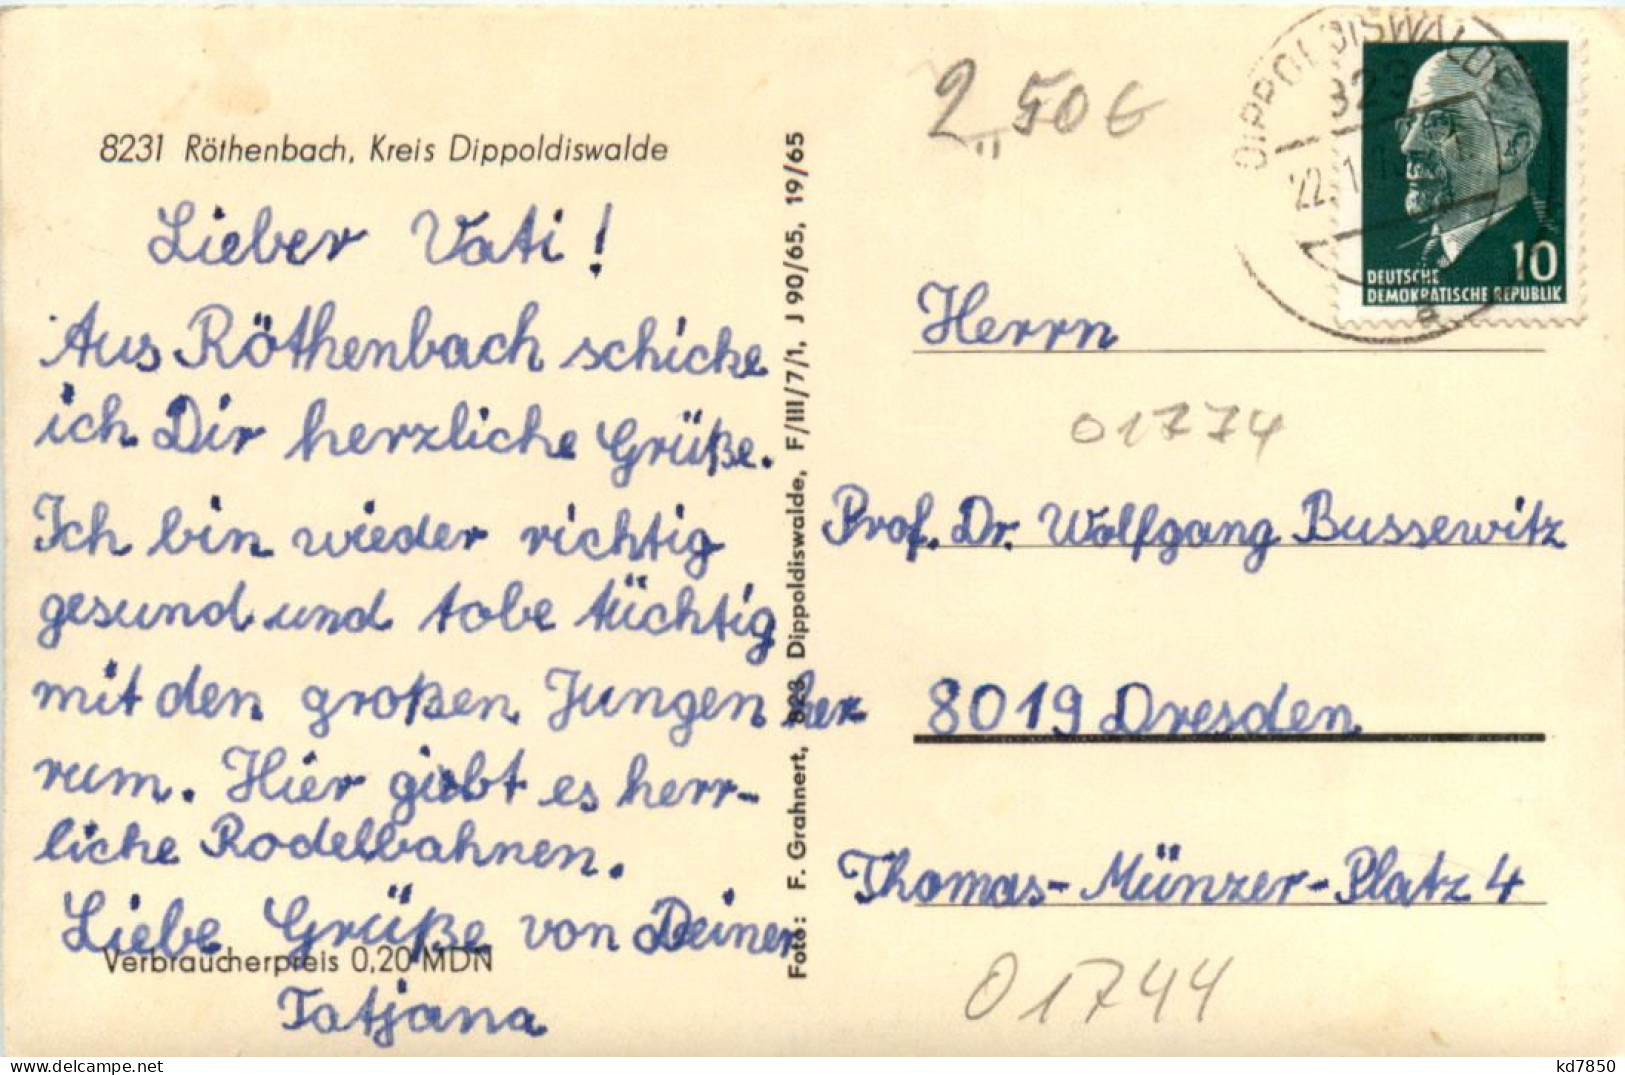 8231 Röthenbach, Kreis Dippoldiswalde
Lieber Vati!
Aus Röthenbach schicke
ich Dir herzliche Grüße.
Ich bin wieder richtig
gesund und tobe tüchtig
mit den großen Jungen her-
rum. Hier giebt es herr-
liche Rodelbahnen.
Liebe Grüße von Deiner
Verbraucherpreis 0,20 MDN
Tatjana
Foto: F. Grahnert, 823 Dippoldiswalde, F/III/7/1, J 90/65, 19/65
2,,50 €
DIPPOLDISWALDE
823
22.1.
a
10
DEUTSCHE
DEMOKRATISCHE REPUBLIK
Herrn
01774
Prof. Dr. Wolfgang Bussewitz
8019 Dresden
Thomas-Münzer-Platz 4
01744
kd7850